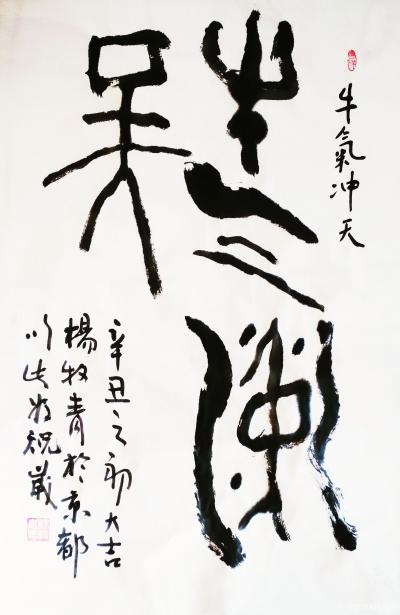 牛氣冲天
牛气衝天
辛丑之初大吉
楊牧青於京都
以此为祝嵗